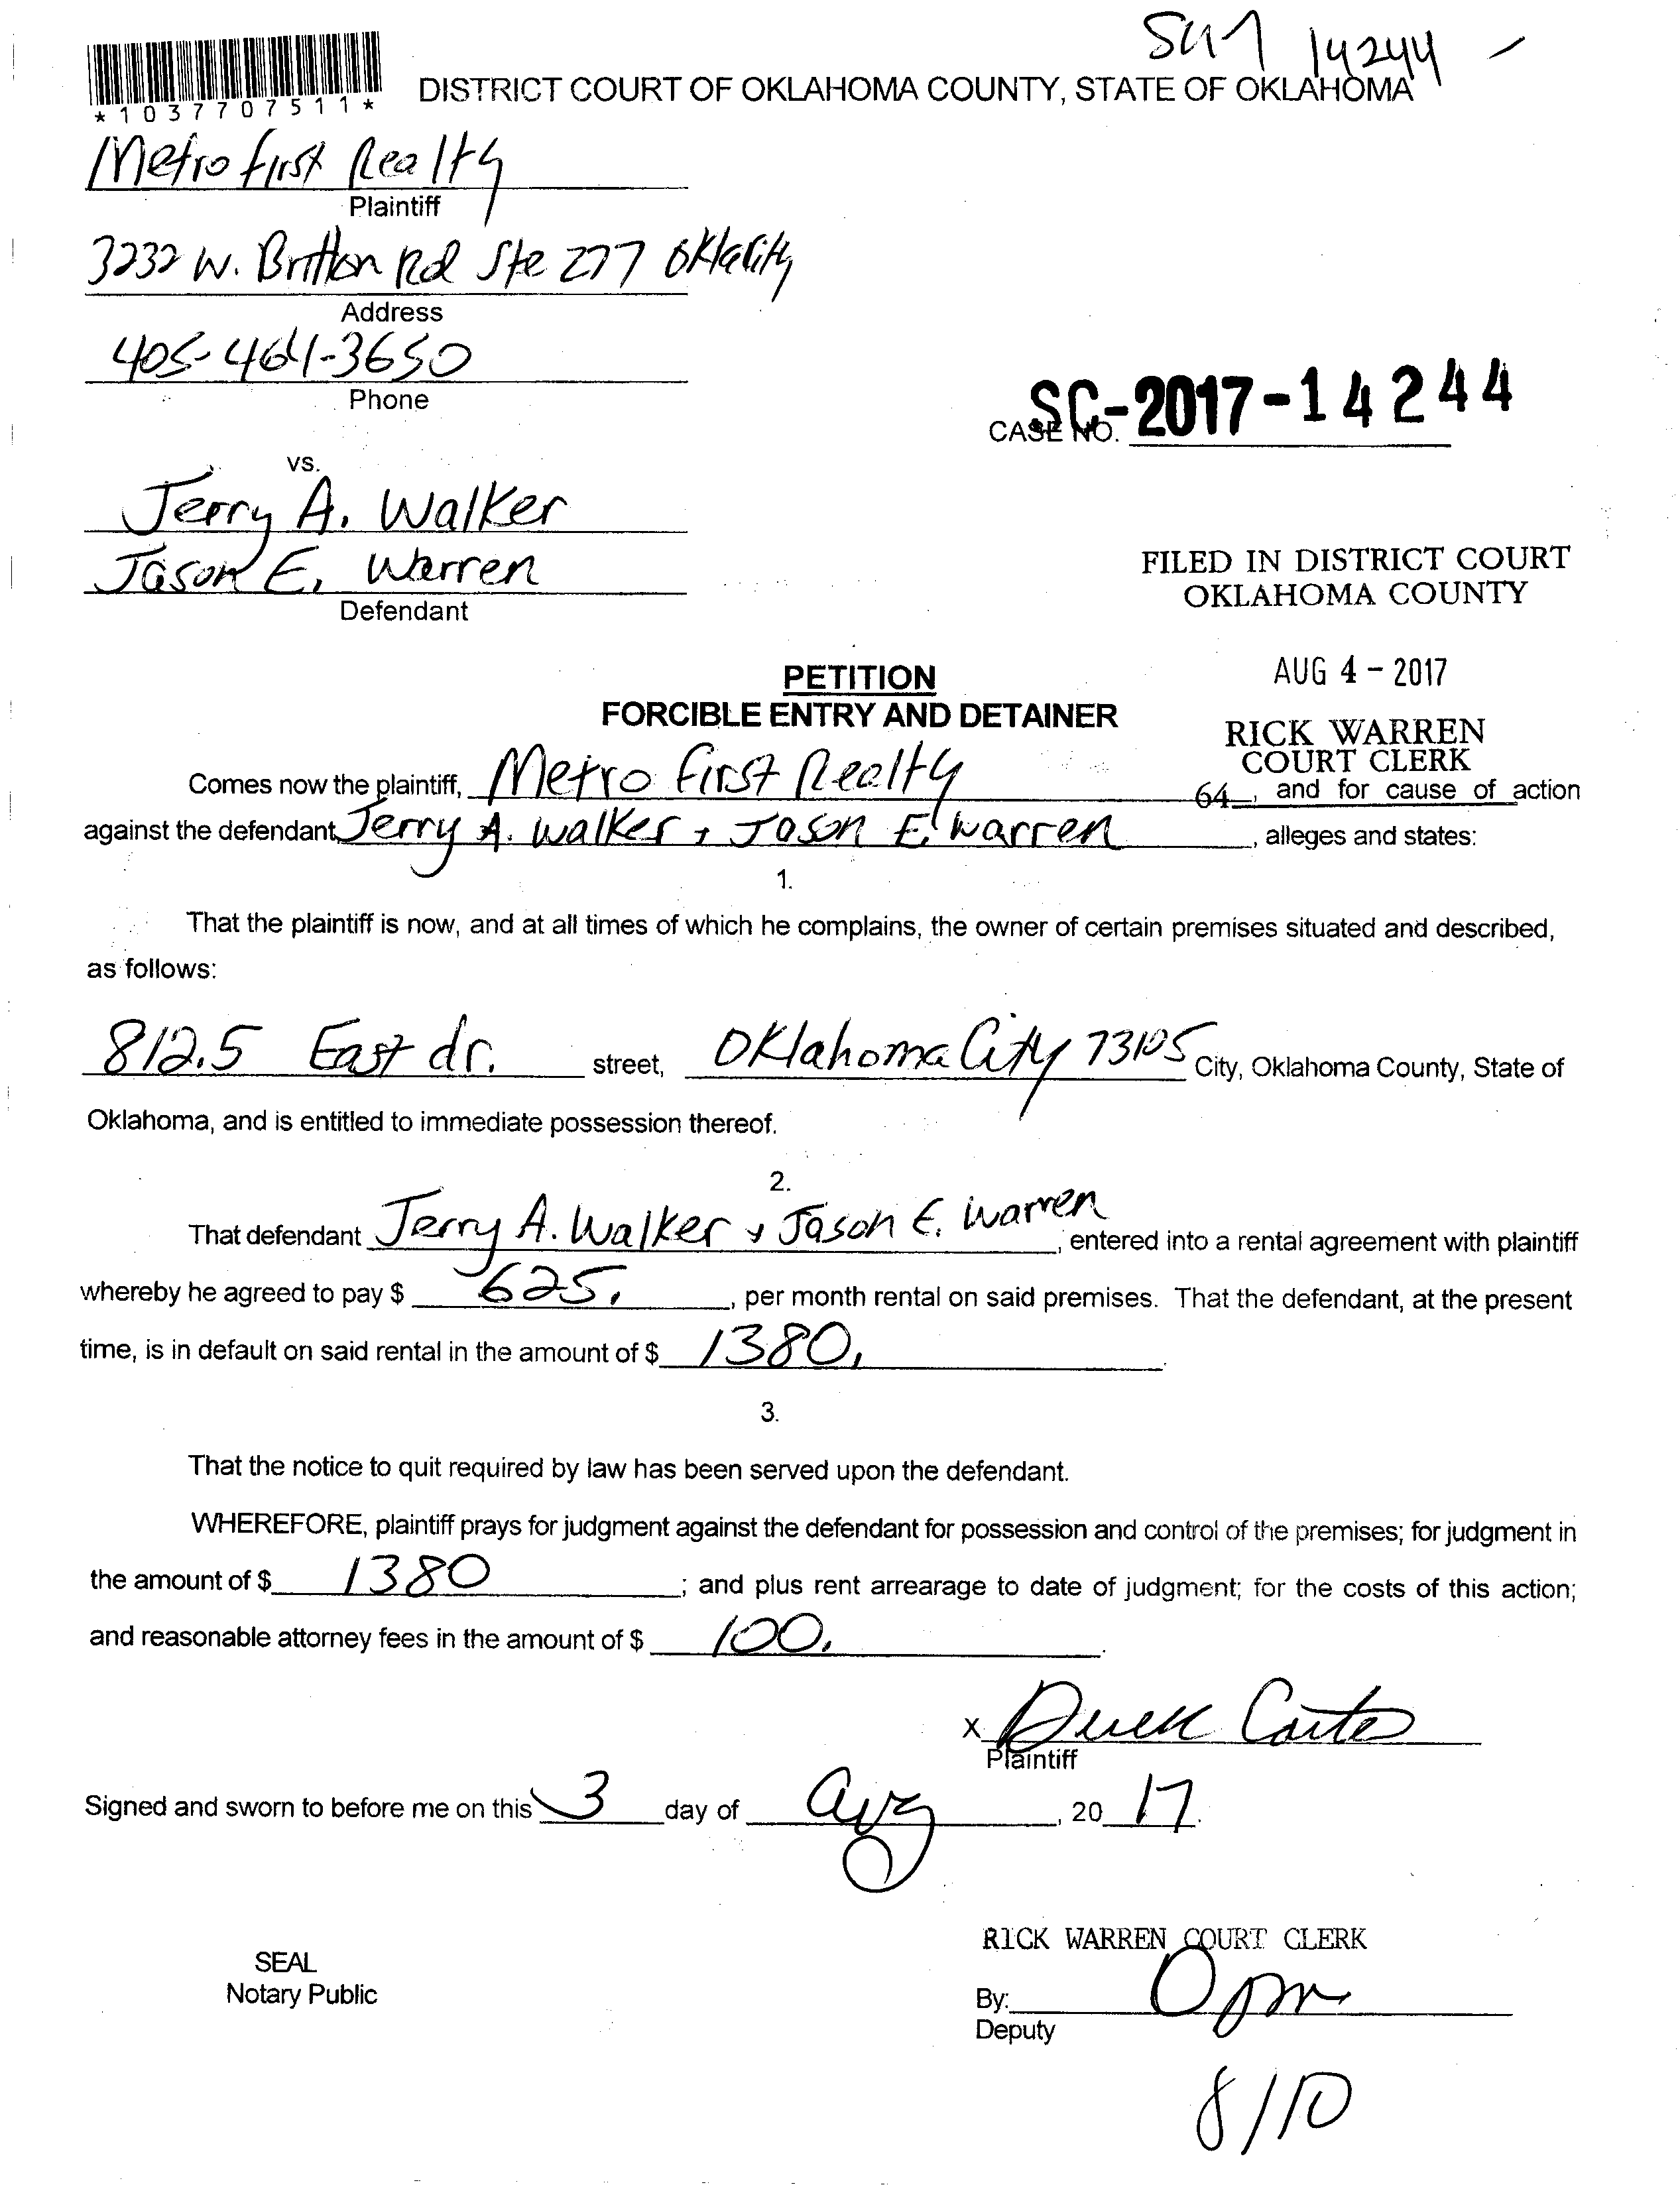 14244
*1037707511*
DISTRICT COURT OF OKLAHOMA COUNTY, STATE OF OKLAHOMA
Metro first Realty
Plaintiff
3232 W. Britton Rd Ste 277 OklaCity
Address
405-464-3650
Phone
CASE NO. SC-2017-14244
vs.
Jerry A. Walker
Jason E. Warren
Defendant
FILED IN DISTRICT COURT
OKLAHOMA COUNTY
AUG 4 - 2017
RICK WARREN
COURT CLERK
PETITION
FORCIBLE ENTRY AND DETAINER
Comes now the plaintiff, Metro First Realty 64, and for cause of action
against the defendant Jerry A. Walker + Jason E. Warren, alleges and states:
1.
That the plaintiff is now, and at all times of which he complains, the owner of certain premises situated and described,
as follows:
812.5 East dr. street, Oklahoma City 73105 City, Oklahoma County, State of
Oklahoma, and is entitled to immediate possession thereof.
2.
That defendant Jerry A. Walker + Jason E. Warren, entered into a rental agreement with plaintiff
whereby he agreed to pay $ 625., per month rental on said premises. That the defendant, at the present
time, is in default on said rental in the amount of $ 1380,.
3.
That the notice to quit required by law has been served upon the defendant.
WHEREFORE, plaintiff prays for judgment against the defendant for possession and control of the premises; for judgment in
the amount of $ 1380; and plus rent arrearage to date of judgment; for the costs of this action;
and reasonable attorney fees in the amount of $ 100,.
X Derek Carter
Plaintiff
Signed and sworn to before me on this 3 day of aug, 20 17.
SEAL
Notary Public
RICK WARREN COURT CLERK
By:
Deputy
8/10